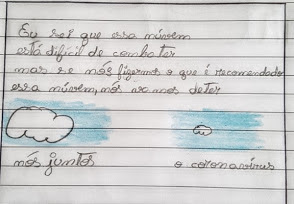 Eu sei que essa núvem
está difícil de combater
mas se nós fizermos o que é recomendado
essa núvem, nós vamos deter
nós juntos
o coronavírus